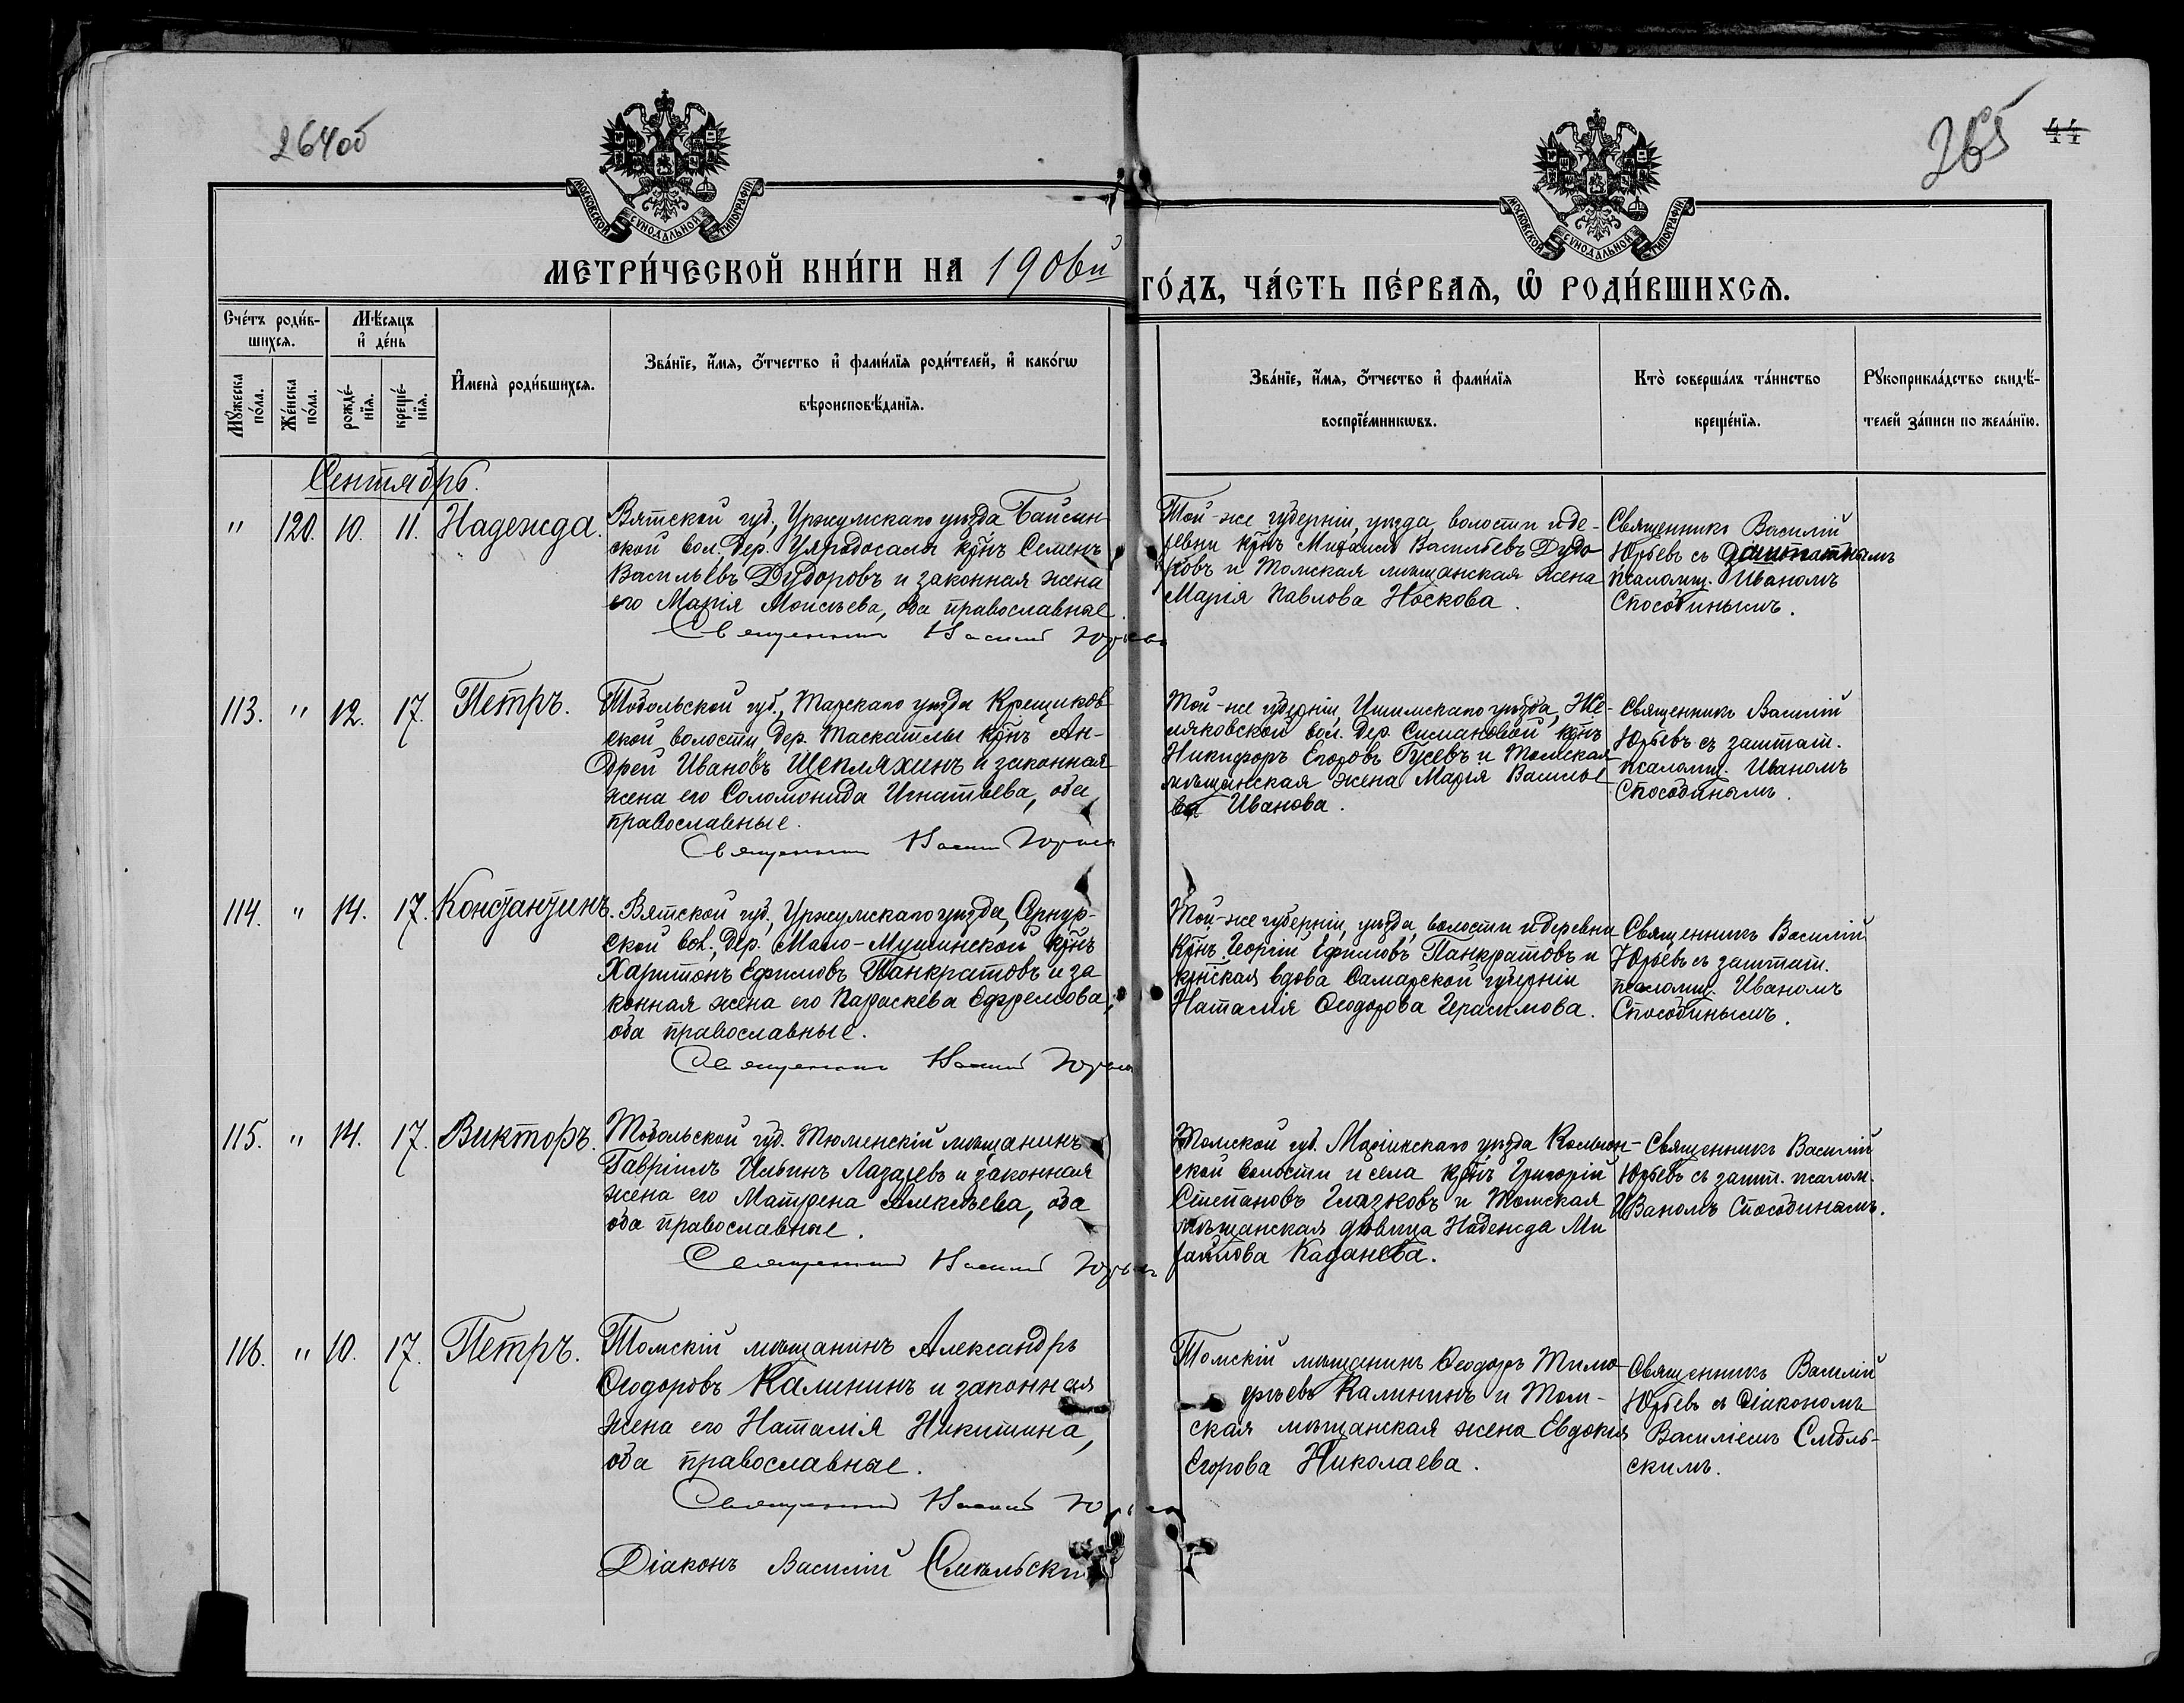 264об
265
44
МОСКОВСКОЙ СѴНОДАЛЬНОЙ ТИПОГРАФІИ
МОСКОВСКОЙ СѴНОДАЛЬНОЙ ТИПОГРАФІИ
МЕТРИ́ЧЕСКОЙ КНИ́ГИ НА 1906й ГО́ДЪ, ЧА́СТЬ ПЕ́РВАЯ, Ѡ҆ РОДИ́ВШИХСЯ.
Сче́тъ роди́в-
шихся.
Мꙋжеска по́ла.
Же́нска по́ла.
Мѣ́сяцъ
и҆ де́нь
рожде́-
нїя.
креще́-
нїя.
И҆мена̀ роди́вшихся.
Зва́нїе, и҆́мя, ѻ҆́тчество и҆ фами́лїя роди́телей, и҆ како́гѡ
вѣроисповѣ́данїя.
Зва́нїе, и҆́мя, ѻ҆́тчество и҆ фами́лїя
воспрїе́мникѡвъ.
Кто̀ соверша́лъ та́инство
креще́нїя.
Рꙋкоприкла́дство свидѣ́-
телей за́писи по жела́нїю.
Сентябрь.
" 120. 10. 11. Надежда.
Вятской губ., Уржумскаго уѣзда Байсин-
ской вол., дер. Уяродосалы крнъ Семенъ
Васильевъ Дудоровъ и законная жена
его Марія Моисѣева, оба православные.
Священникъ Василій Юрьевъ
Той-же губерніи, уѣзда, волости и де-
ревни крнъ Михаилъ Васильевъ Дудо-
ровъ и Томская мѣщанская жена
Марія Павлова Носкова.
Священникъ Василій
Юрьевъ съ заштатнымъ
псаломщ. Иваномъ
Способинымъ.
113. " 12. 17. Петръ.
Тобольской губ., Тарскаго уѣзда Крещиков-
ской волости, дер. Таскатлы крнъ Ан-
дрей Ивановъ Щепляхинъ и законная
жена его Соломонида Игнатьева, оба
православные.
Священникъ Василій Юрьевъ
Той-же губерніи, Ишимскаго уѣзда, Же-
ляковской вол. дер. Симановой крнъ
Никифоръ Егоровъ Гусевъ и Томская
мѣщанская жена Марія Василье-
ва Иванова.
Священникъ Василій
Юрьевъ съ заштат.
псаломщ. Иваномъ
Способинымъ.
114. " 14. 17. Константинъ.
Вятской губ., Уржумскаго уѣзда, Сернур-
ской вол., дер. Мало-Мушинской крнъ
Харитонъ Ефимовъ Панкратовъ и за
конная жена его Параскева Ефремова,
оба православные.
Священникъ Василій Юрьевъ
Той-же губерніи, уѣзда, волости и деревни
крнъ Георгій Ефимовъ Панкратовъ и
крнская вдова Самарской губерніи
Наталія Ѳеодорова Герасимова.
Священникъ Василій
Юрьевъ съ заштат.
псаломщ. Иваномъ
Способинымъ.
115. " 14. 17. Викторъ.
Тобольской губ. Тюменскій мѣщанинъ
Гавріилъ Ильинъ Лазаревъ и законная
жена его Матрена Алексѣева, оба
оба православные.
Священникъ Василій Юрьевъ
Томской губ. Маріинскаго уѣзда Колыон-
ской волости и села крнъ Григорій
Степановъ Глазковъ и Томская
мѣщанская дѣвица Надежда Ми
хайлова Каданева.
Священникъ Василій
Юрьевъ съ зашт. псалом.
Иваномъ Способинымъ.
116. " 10. 17. Петръ.
Томскій мѣщанинъ Александръ
Ѳеодоровъ Калининъ и законная
жена его Наталія Никитина,
оба православные.
Священникъ Василій Юрьевъ
Діаконъ Василій Смѣльскій
Томскій мѣщанинъ Ѳеодоръ Тимо-
ѳеевъ Калининъ и Том-
ская мѣщанская жена Евдокія
Егорова Николаева.
Священникъ Василій
Юрьевъ съ діакономъ
Василіемъ Смѣль-
скимъ.